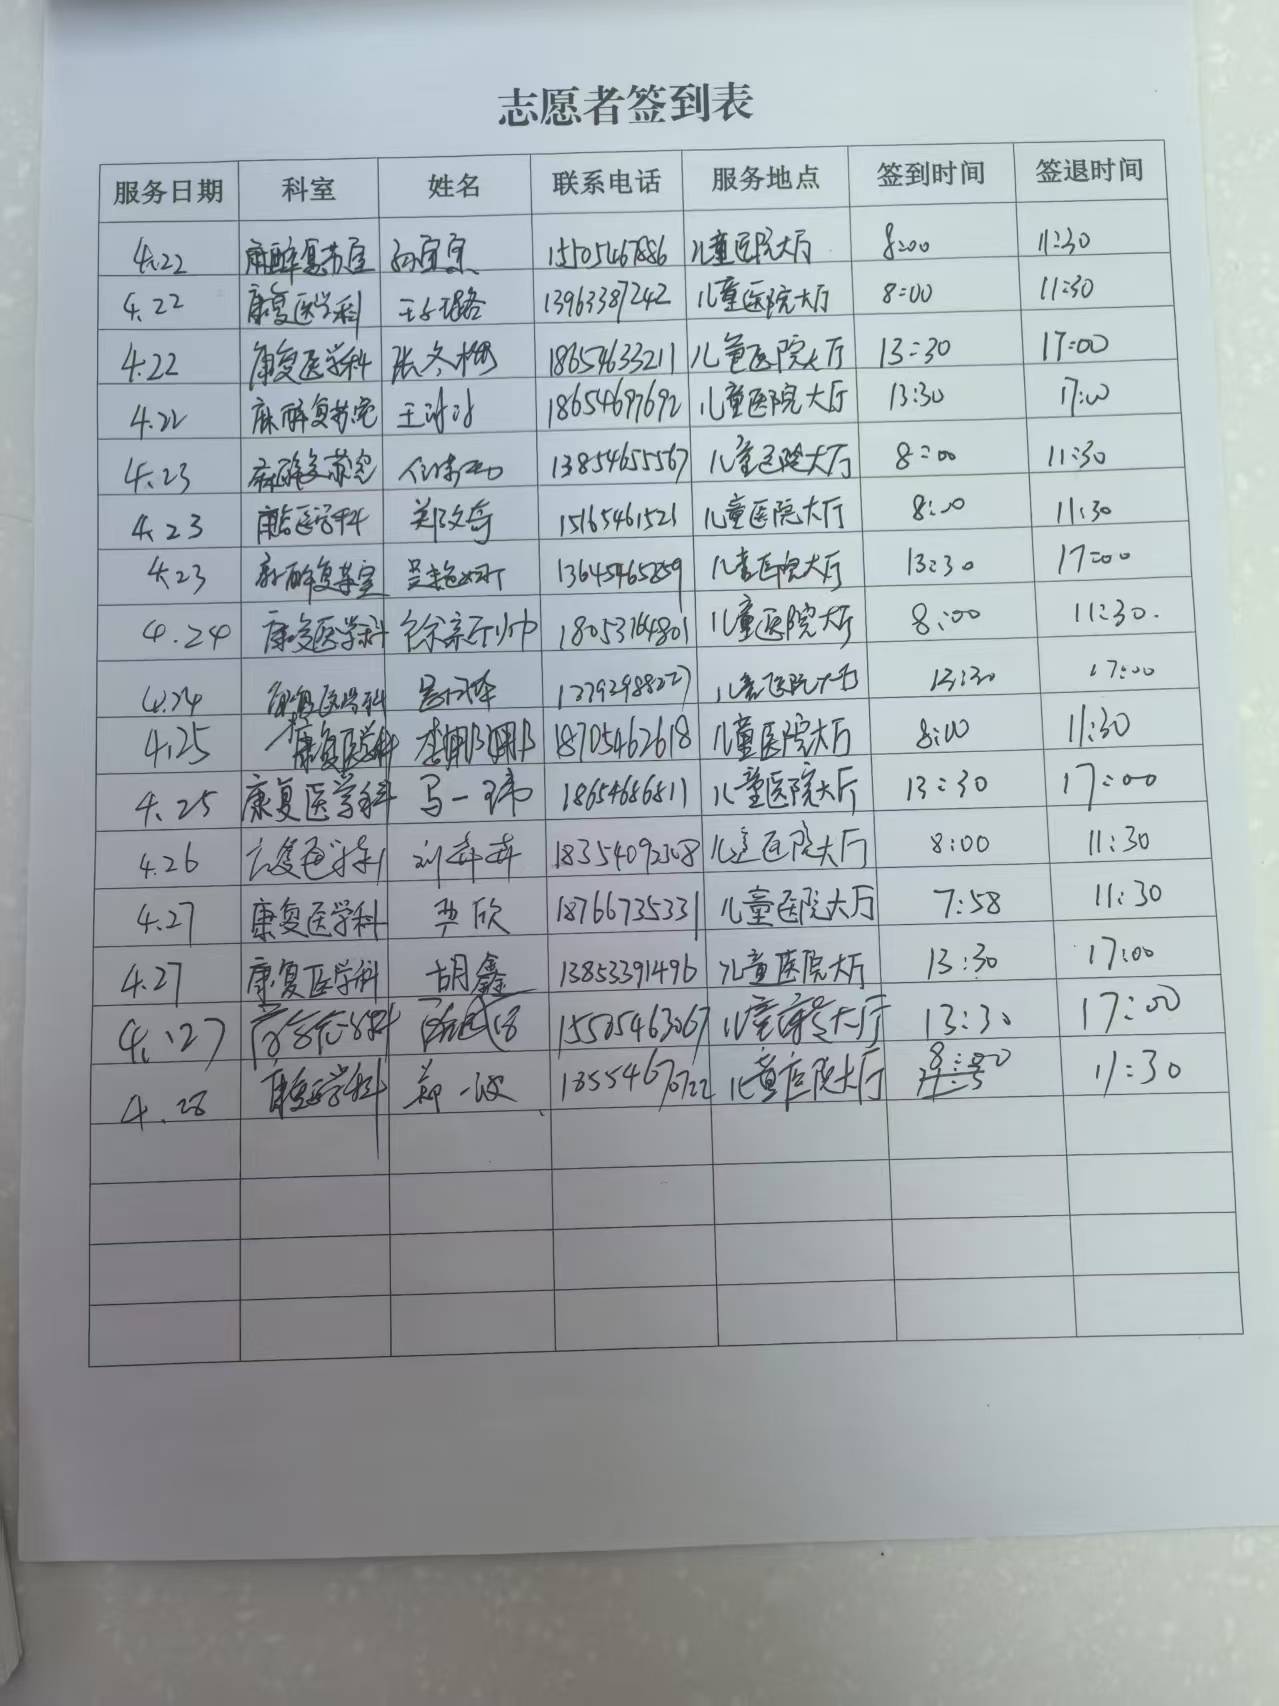 志愿者签到表
服务日期 科室 姓名 联系电话 服务地点 签到时间 签退时间
4.22 麻醉复苏室 15505467886 儿童医院大厅 8:00 11:30
4.22 康复医学科 王璐 13963387242 儿童医院大厅 8:00 11:30
4.22 康复医学科 张冬梅 18654633211 儿童医院大厅 13:30 17:00
4.22 麻醉复苏室 王冰冰 18654697692 儿童医院大厅 13:30 17:00
4.23 麻醉复苏室 13854655567 儿童医院大厅 8:00 11:30
4.23 康复医学科 郑文奇 15165461521 儿童医院大厅 8:00 11:30
4.23 麻醉复苏室 13645465859 儿童医院大厅 13:30 17:00
4.24 康复医学科 18053764801 儿童医院大厅 8:00 11:30.
4.24 康复医学科 儿童医院大厅 13:30 17:00
4.25 康复医学科 李娜娜 18705462618 儿童医院大厅 8:00 11:30
4.25 康复医学科 马一玮 18654686811 儿童医院大厅 13:30 17:00
4.26 康复医学科 刘卉卉 18354092308 儿童医院大厅 8:00 11:30
4.27 康复医学科 李欣 18766735331 儿童医院大厅 7:58 11:30
4.27 康复医学科 胡鑫 13853391496 儿童医院大厅 13:30 17:00
4.27 15505463067 儿童 大厅 13:30 17:00
4.28 康复医学科 郑一波 儿童医院大厅 8:00 11:30